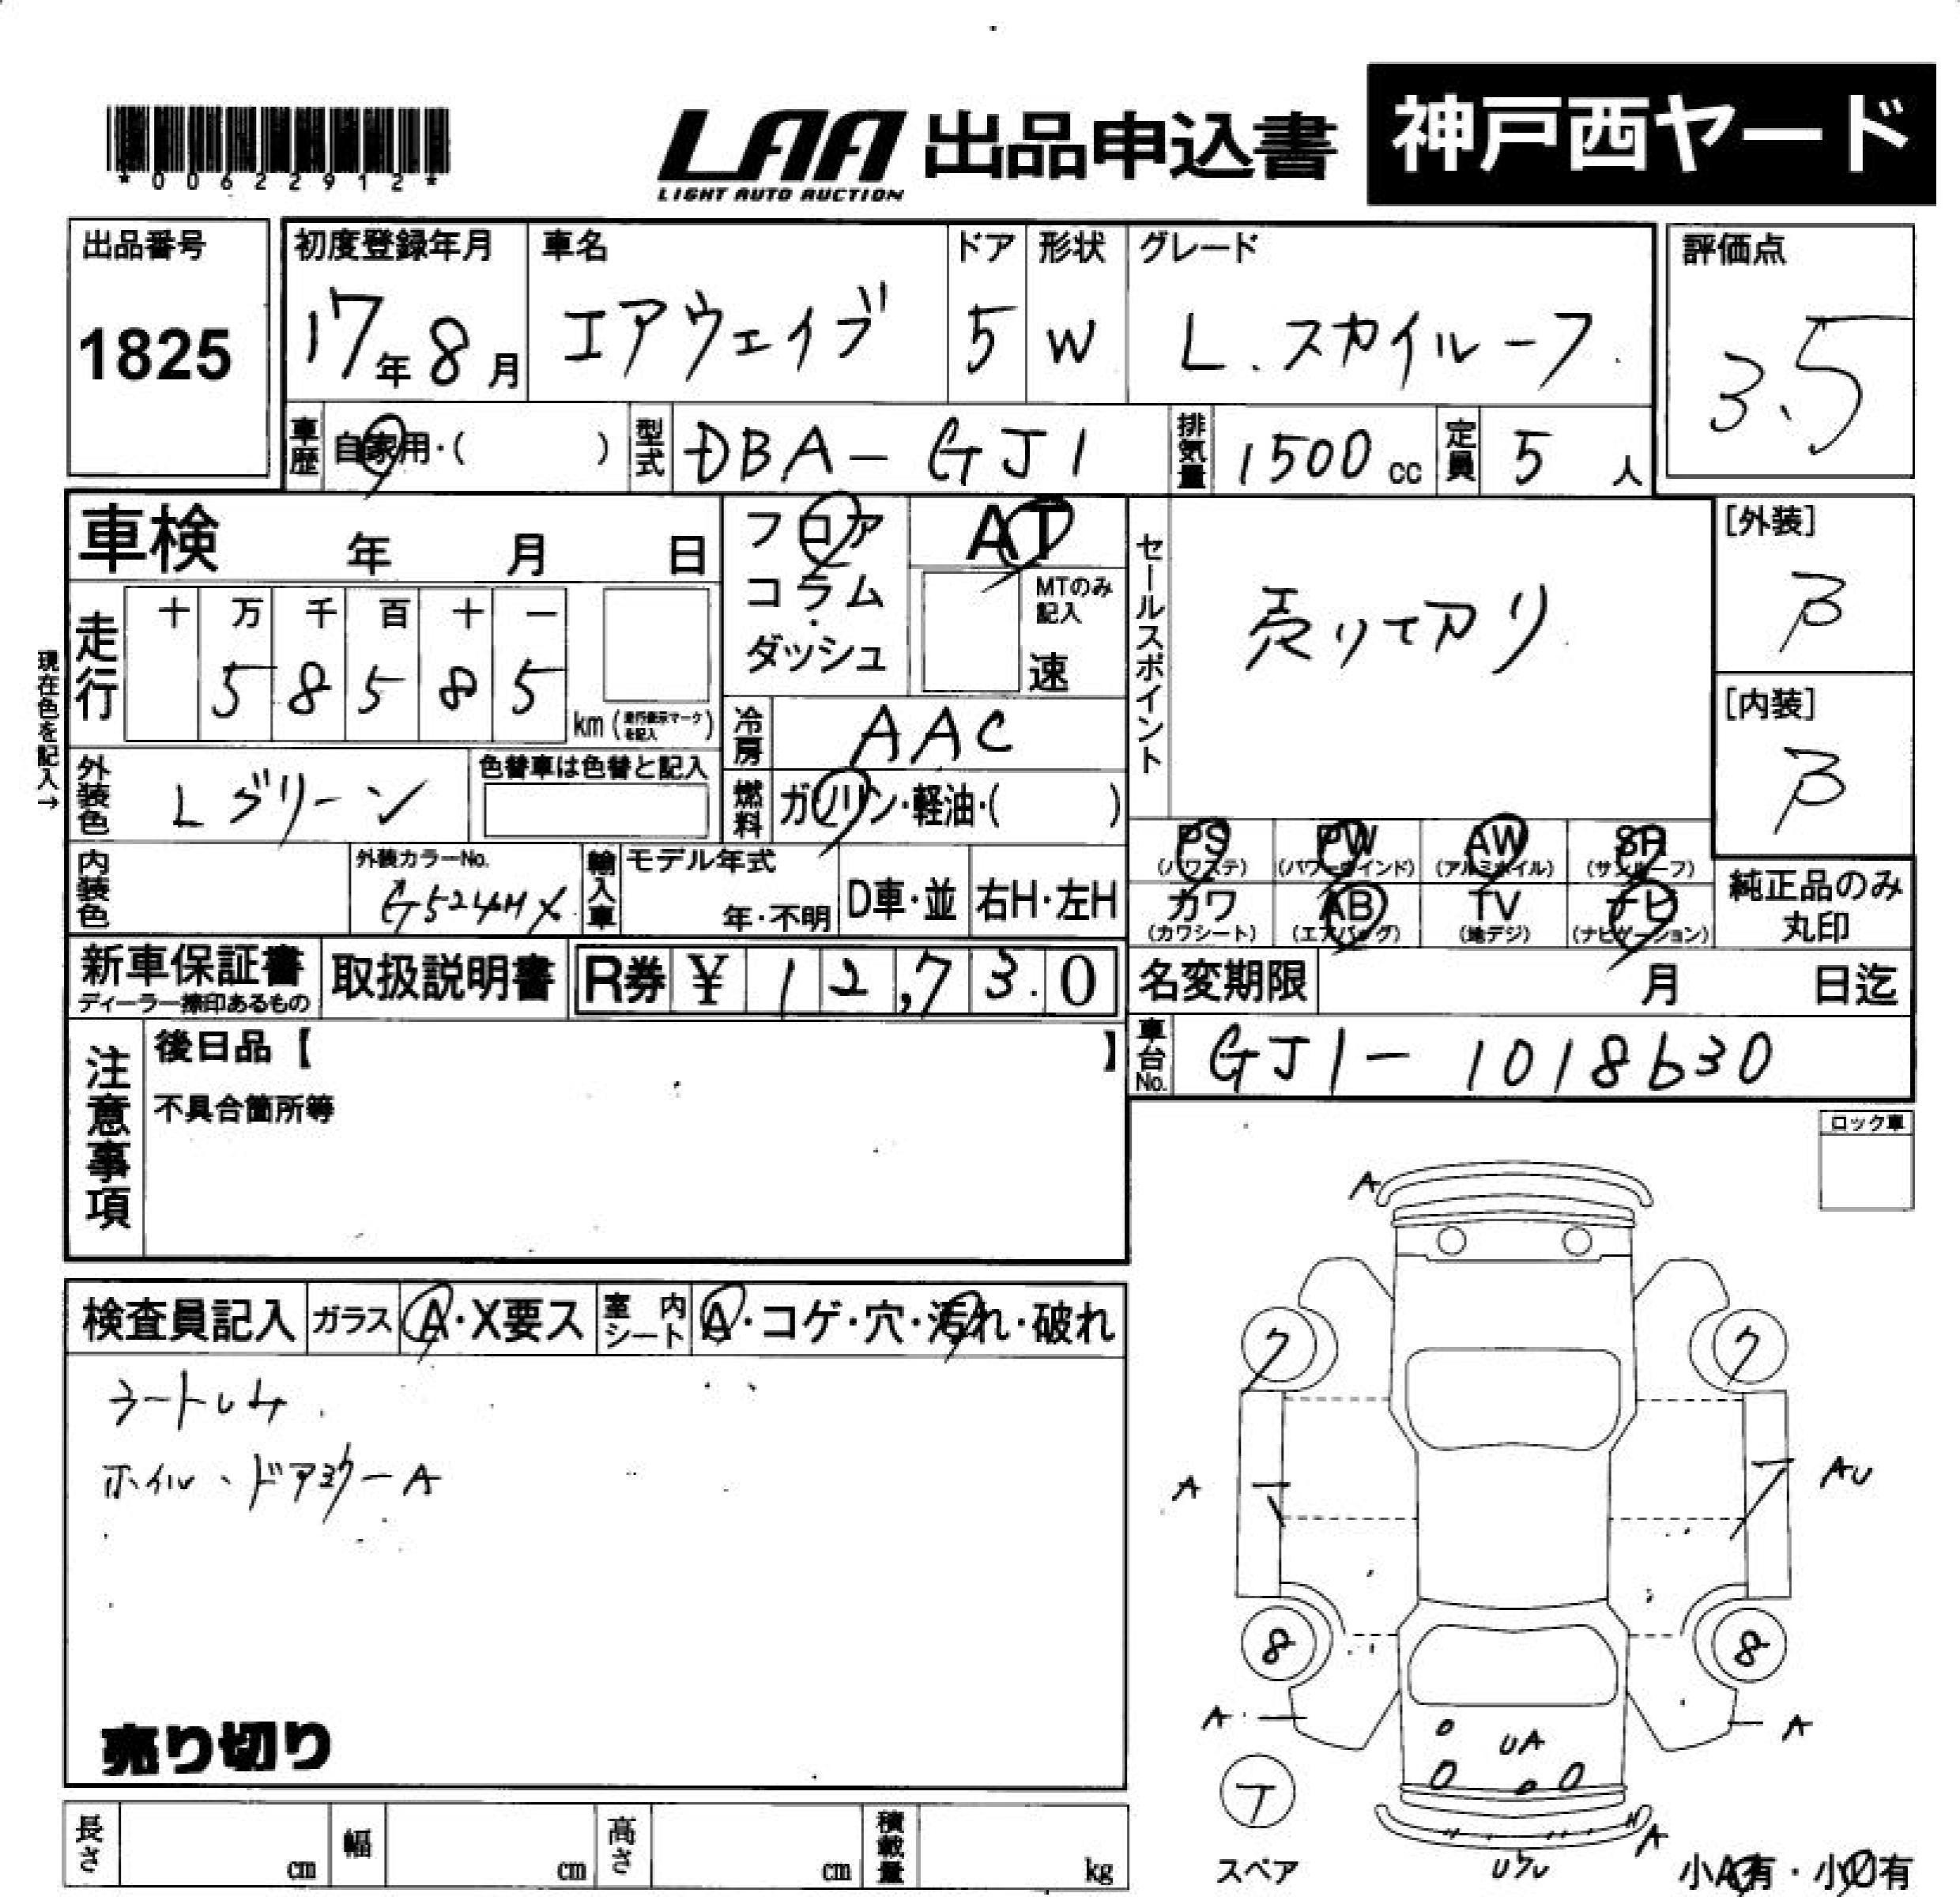 *00622912*
LAA 出品申込書 神戸西ヤード
LIGHT AUTO AUCTION
出品番号 初度登録年月 車名 ドア 形状 グレード 評価点
1825 17年8月 エアウェイブ 5 W L.スカイルーフ 3.5
車歴 自家用・( ) 型式 DBA-GJ1 排気量 1500cc 定員 5人
車検 年 月 日 フロア AT セールスポイント [外装]
コラム MTのみ記入 売りて切り B
走行 十 万 千 百 十 一 ダッシュ 速
現在色を記入→
5 8 5 8 5 km(走行表示マークを記入) 冷房 AAC [内装]
外装色 Lグリーン 色替車は色替と記入 燃料 ガソリン・軽油・( ) B
PS PW AW SR
(パワステ) (パワーウインド) (アルミホイル) (サンルーフ)
内装色 外装カラーNo. G524MX 輸入車 モデル年式 年・不明 D車・並 右H・左H
カワ AB TV ナビ 純正品のみ
(カワシート) (エアバッグ) (地デジ) (ナビゲーション) 丸印
新車保証書 取扱説明書 R券 ¥ 12,730 名変期限 月 日迄
ディーラー捺印あるもの
注意事項 後日品【 】 車台No. GJ1-1018630
不具合箇所等
ロック車
A
検査員記入 ガラス A・X要ス 室内シート A・コゲ・穴・汚れ・破れ
7 7
ホイル、ドアミラーA
A AU
8 8
A A
UA
売り切り
A
長さ cm 幅 cm 高さ cm 積載量 kg スペア 小A有・小U有